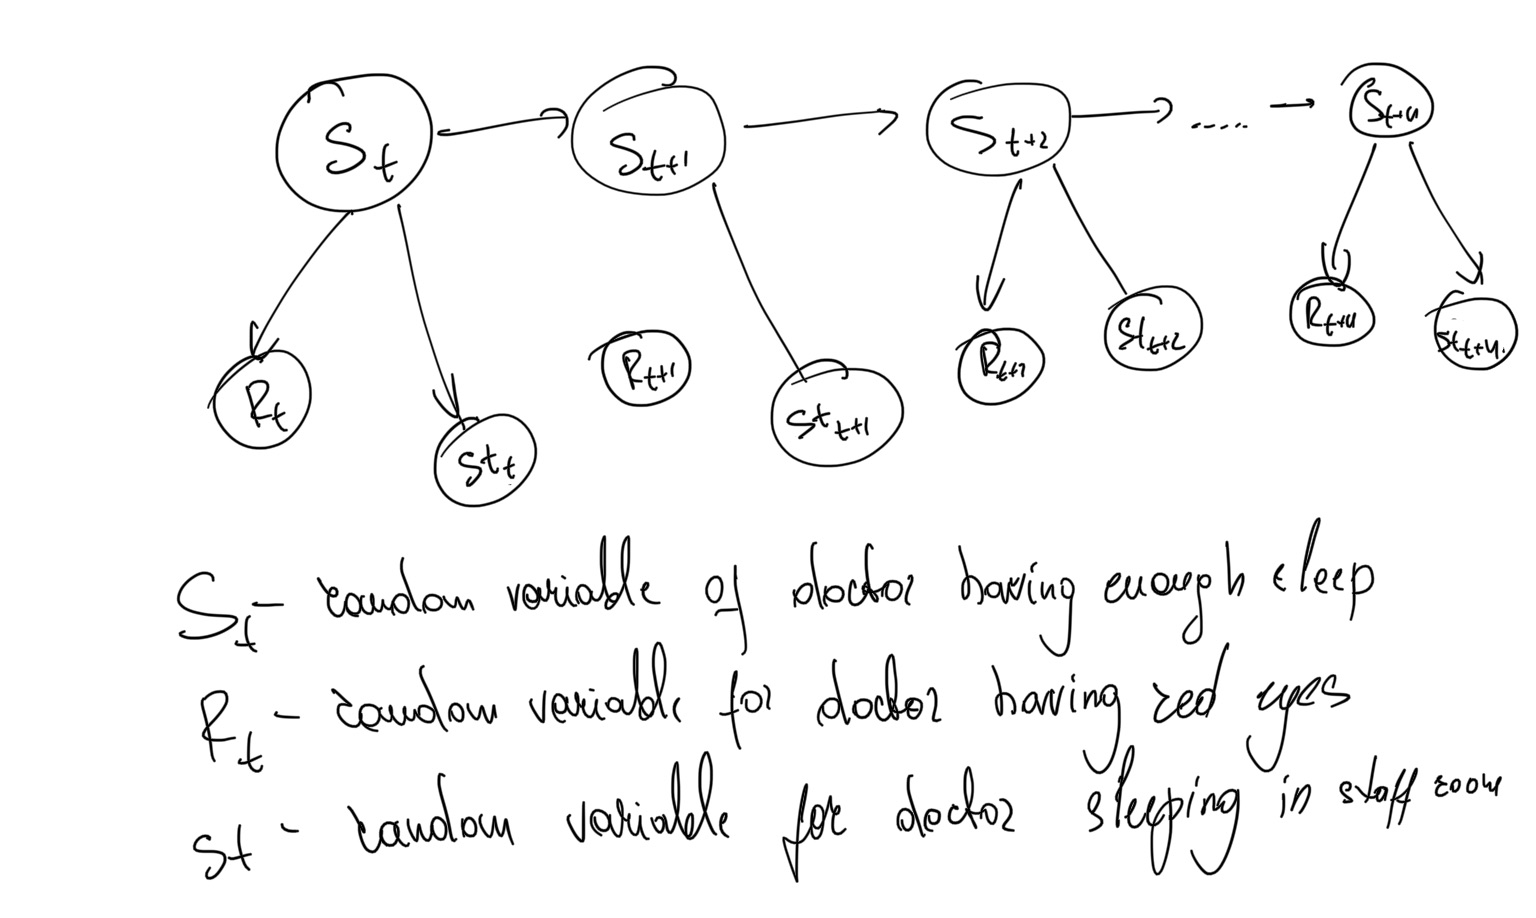 S_t → S_t+1 → S_t+2 → ..... → S_t+4
R_t St_t R_t+1 St_t+1 R_t+2 St_t+2 R_t+4 St_t+4
S_t – random variable of doctor having enough sleep
R_t – random variable for doctor having red eyes
St – random variable for doctor sleeping in staff room